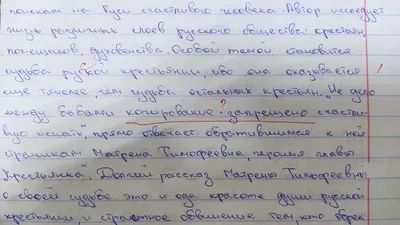 поискам на Руси счастливого человека. Автор исследует
жизнь различных слоев русского общества: крестьян,
помещиков, духовенства. Особой темой становится
судьба русской крестьянки, ибо она оказывается
ещё тяжелее, чем судьба остальных крестьян. „Не дело
между бабами копирование запрещено счастли-
вую искать", прямо отвечает обратившимся к ней
странникам Матрена Тимофеевна, героиня главы
„Крестьянка". Долгий рассказ Матрены Тимофеевны
о своей судьбе это и ода красоте души русской
крестьянки, и страстное обвинение тем, кто обрек